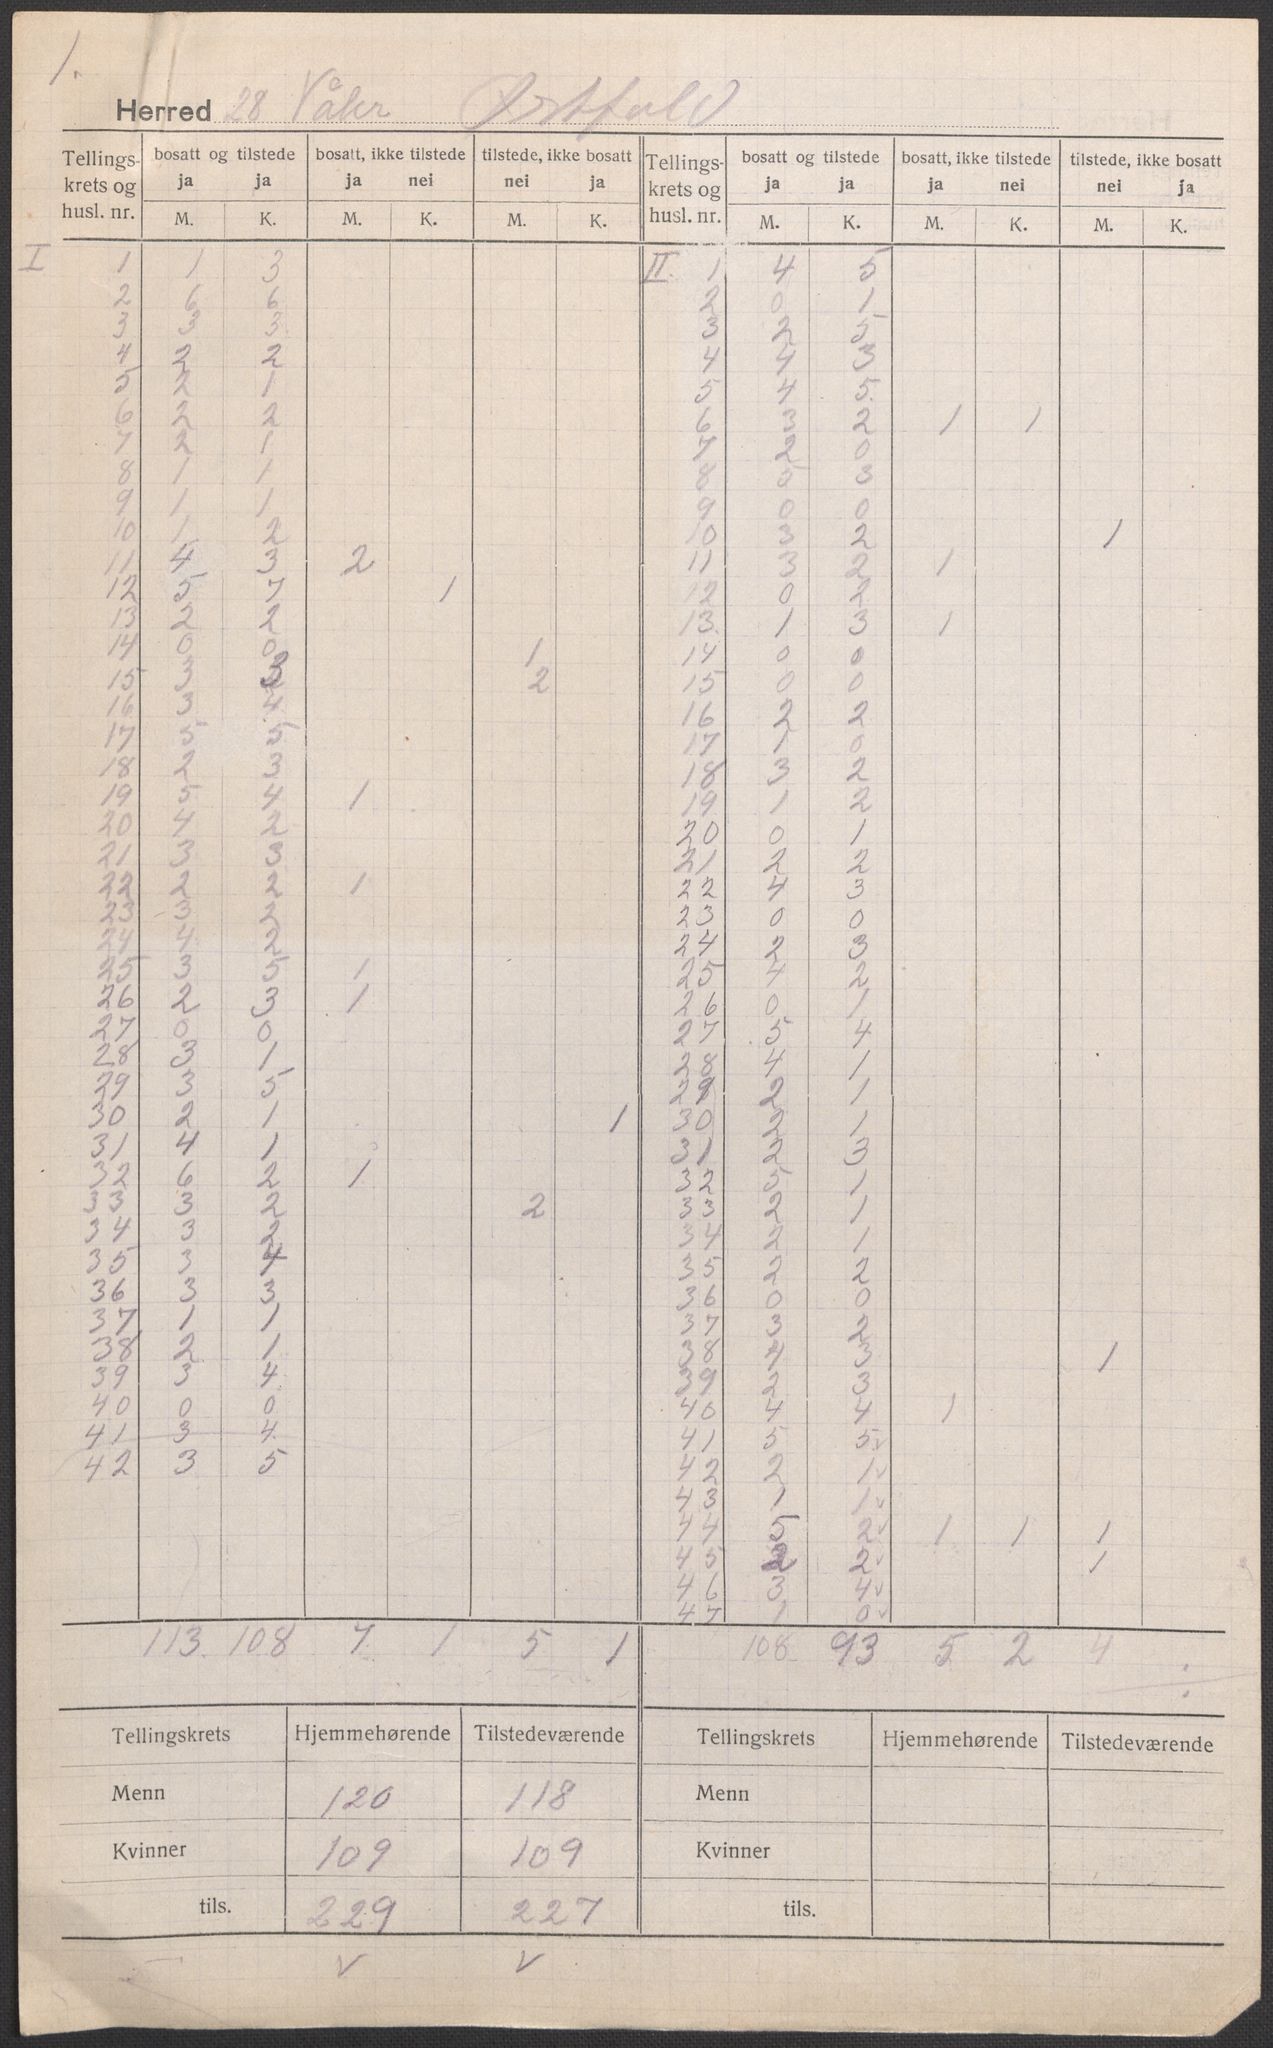 1.
Herred 28 Våler Østfold
Tellings-krets og husl. nr. bosatt og tilstede bosatt, ikke tilstede tilstede, ikke bosatt
ja ja ja nei nei ja
M. K. M. K. M. K.
I 1 1 3
2 6 6
3 3 3
4 2 2
5 2 1
6 2 2
7 2 1
8 1 1
9 1 1
10 1 2
11 4 3 2
12 5 7 1
13 2 2
14 0 0 1
15 3 3 2
16 3 4
17 5 5
18 2 3
19 5 4 1
20 4 2
21 3 3
22 2 2 1
23 3 2
24 4 2
25 3 5 1
26 2 3 1
27 0 0
28 3 1
29 3 5
30 2 1 1
31 4 1
32 6 2 1
33 3 2 2
34 3 2
35 3 4
36 3 3
37 1 1
38 2 1
39 3 4
40 0 0
41 3 4
42 3 5
113 108 7 1 5 1
Tellingskrets Hjemmehørende Tilstedeværende
Menn 120 118
Kvinner 109 109
tils. 229 227
v v
Tellings-krets og husl. nr. bosatt og tilstede bosatt, ikke tilstede tilstede, ikke bosatt
ja ja ja nei nei ja
M. K. M. K. M. K.
II 1 4 5
2 0 1
3 2 5
4 4 3
5 4 5
6 3 2 1 1
7 2 0
8 5 3
9 0 0
10 3 2 1
11 3 2 1
12 0 2
13 1 3 1
14 0 0
15 0 0
16 2 2
17 1 0
18 3 2
19 1 2
20 0 1
21 2 2
22 4 3
23 0 0
24 2 3
25 4 2
26 0 1
27 5 4
28 4 1
29 2 1
30 2 1
31 2 3
32 5 1
33 2 1
34 2 1
35 2 2
36 0 0
37 3 2
38 4 3 1
39 2 3
40 4 4 1
41 5 5 v
42 2 1 v
43 1 1 v
44 5 2 v 1 1 1
45 2 2 v 1
46 3 4 v
47 1 0 v
108 93 5 2 4 :
Tellingskrets Hjemmehørende Tilstedeværende
Menn
Kvinner
tils.